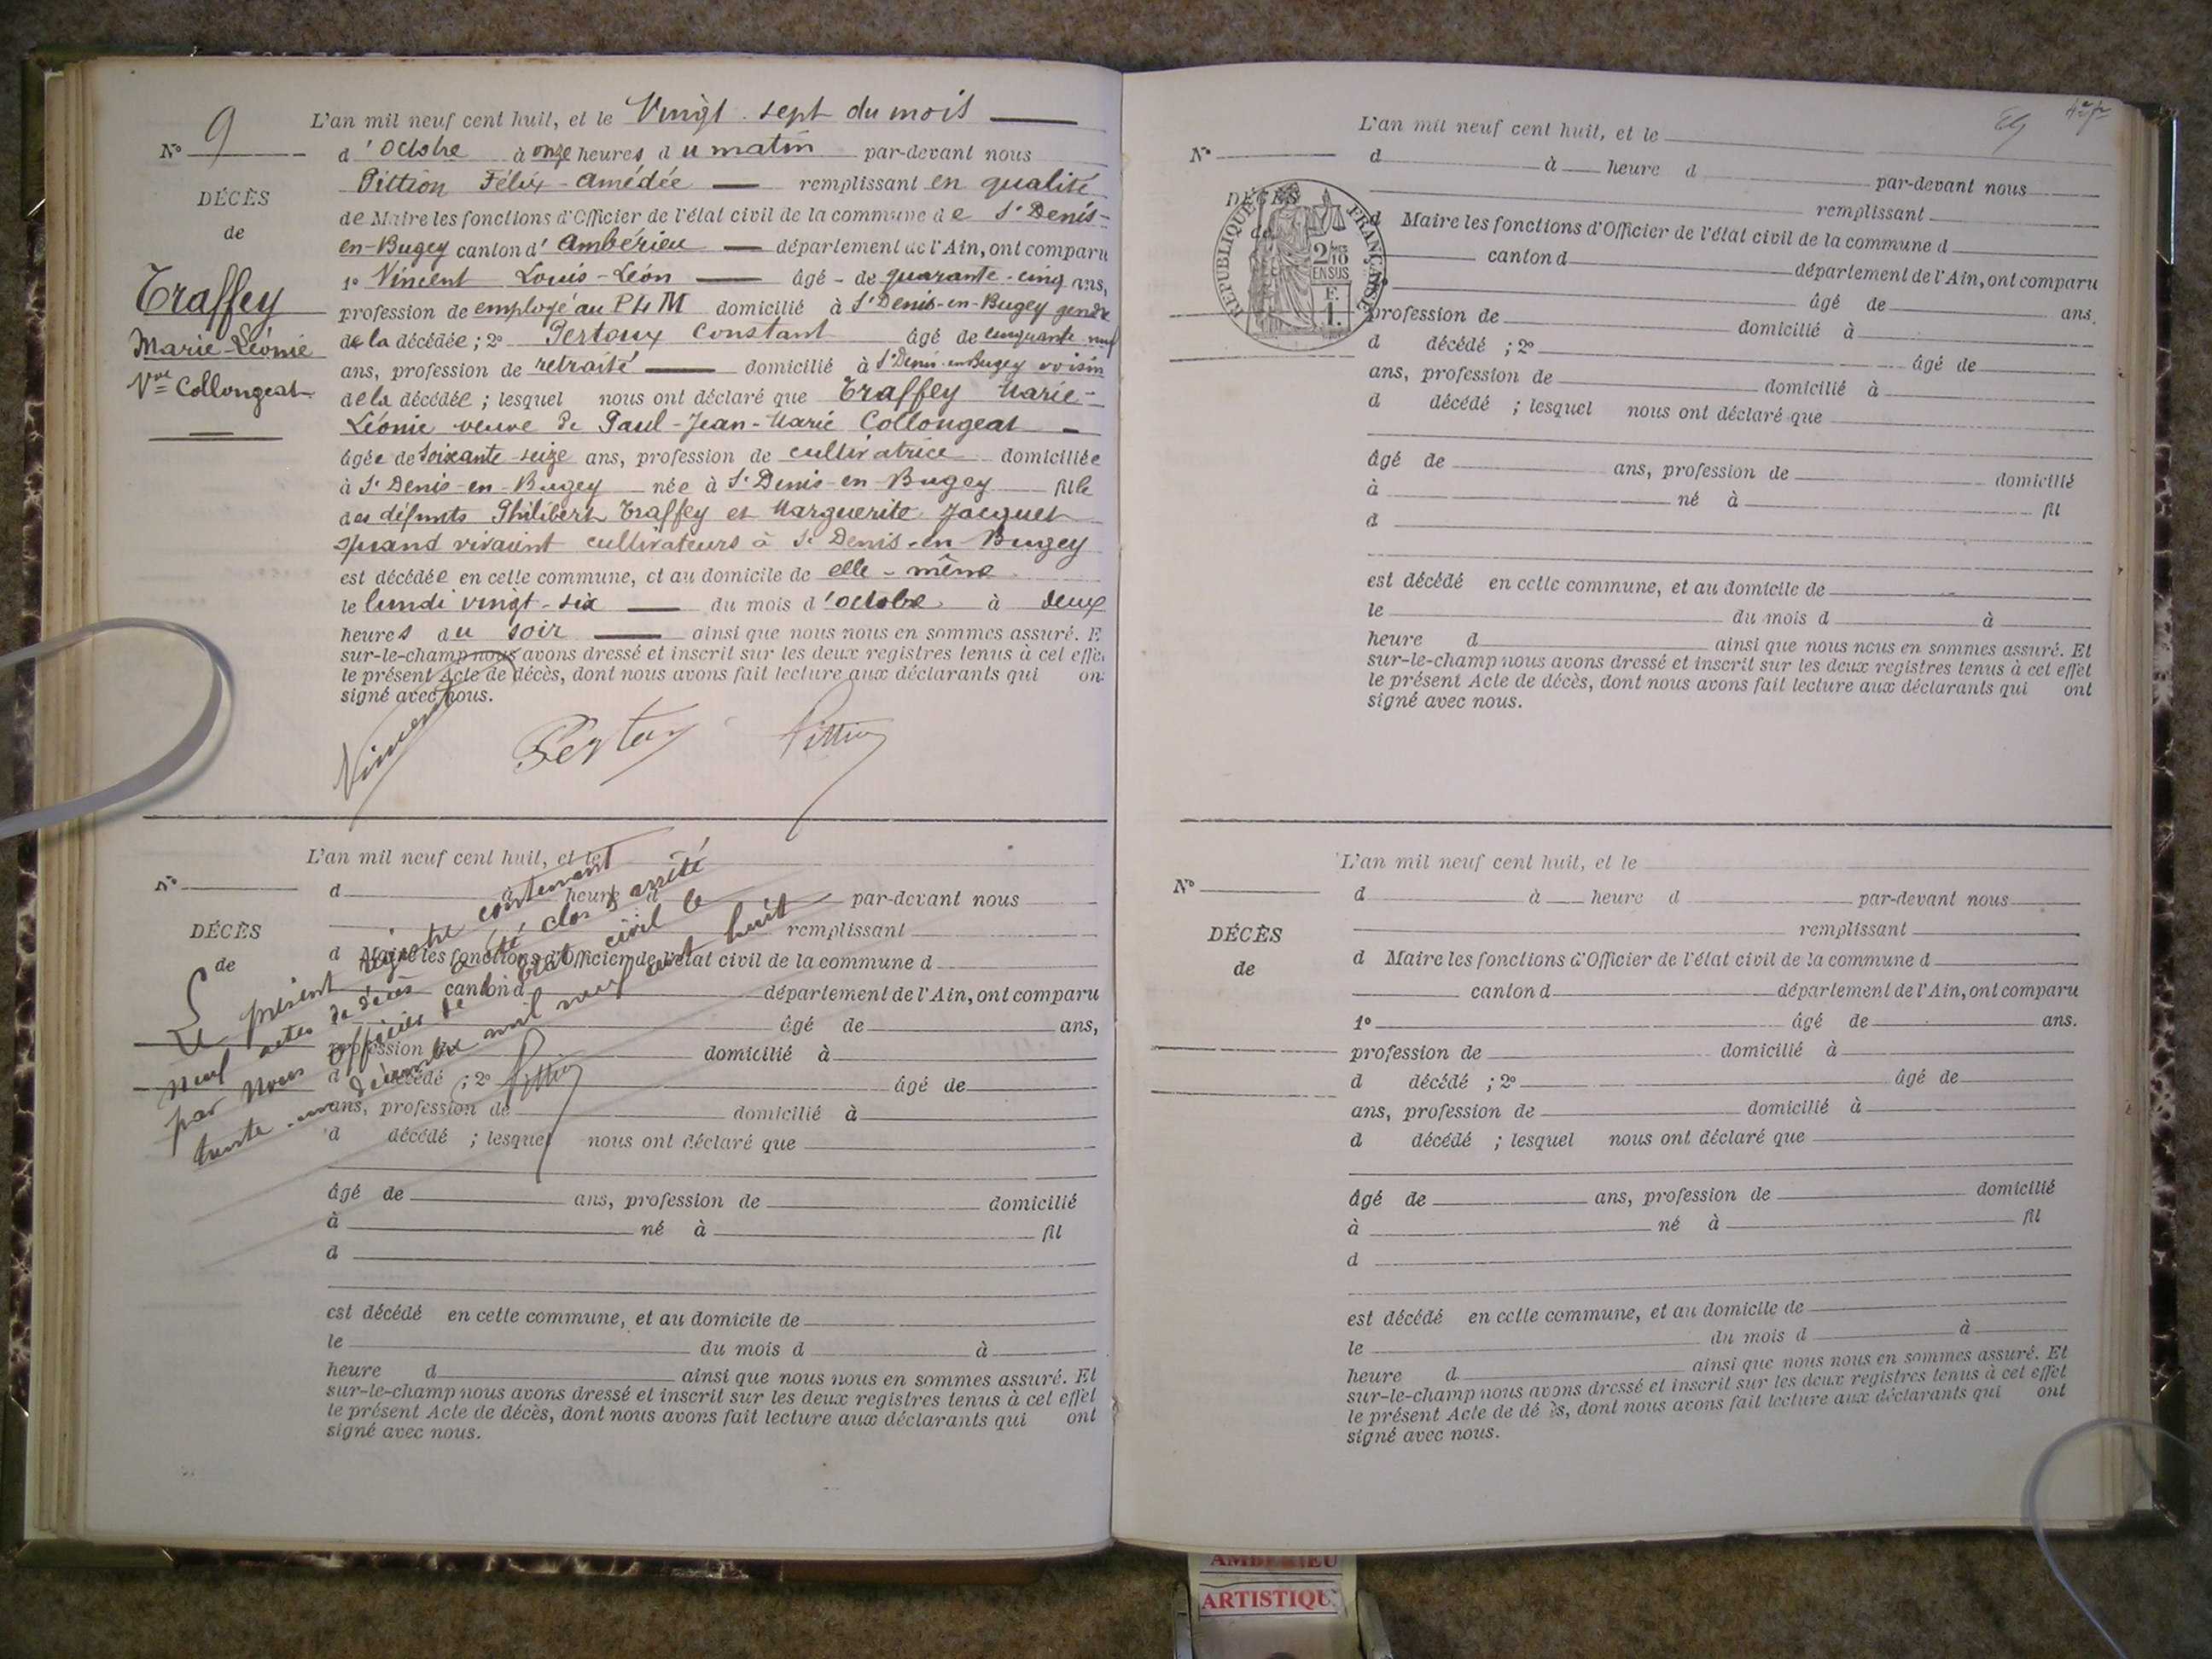 N° 9
DÉCÈS
de
Traffey
Marie-Léonie
Vve Collongeat
L'an mil neuf cent huit, et le Vingt-sept du mois
d'octobre à onze heures du matin par-devant nous
Pittion Félix-Amédée remplissant en qualité
de Maire les fonctions d'Officier de l'état civil de la commune de St Denis-
en-Bugey canton d'Ambérieu département de l'Ain, ont comparu
1° Vincent Louis-Léon âgé de quarante-cinq ans,
profession de employé au PLM domicilié à St Denis-en-Bugey gendre
de la décédée ; 2° Pertoux Constant âgé de cinquante neuf
ans, profession de retraité domicilié à St Denis-en-Bugey voisin
de la décédée ; lesquel nous ont déclaré que Traffey Marie-
Léonie veuve de Paul-Jean-Marie Collongeat
âgée de soixante-seize ans, profession de cultivatrice domiciliée
à St Denis-en-Bugey née à St Denis-en-Bugey fille
des défunts Philibert Traffey et Marguerite Jacquet
quand vivaient cultivateurs à St Denis-en-Bugey
est décédée en cette commune, et au domicile de elle-même
le lundi vingt-six du mois d'octobre à deux
heures du soir ainsi que nous nous en sommes assuré. E
sur-le-champ nous avons dressé et inscrit sur les deux registres tenus à cet effe
le présent Acte de décès, dont nous avons fait lecture aux déclarants qui on
signé avec nous.
Vincent Pertoux Pittion
L'an mil neuf cent huit, et le
N°
d à heure d par-devant nous
remplissant
DÉCÈS
de
d Maire les fonctions d'Officier de l'état civil de la commune d
canton d département de l'Ain, ont comparu
âgé de ans,
profession de domicilié à
d décédé ; 2° âgé de
ans, profession de domicilié à
d décédé ; lesquel nous ont déclaré que
âgé de ans, profession de domicilié
à né à fil
d
est décédé en cette commune, et au domicile de
le du mois d à
heure d ainsi que nous nous en sommes assuré. Et
sur-le-champ nous avons dressé et inscrit sur les deux registres tenus à cet effet
le présent Acte de décès, dont nous avons fait lecture aux déclarants qui ont
signé avec nous.
Le présent registre contenant
neuf actes de décès a été clos & arrêté
par nous officier de l'état civil le
trente-un décembre mil neuf cent huit
Pittion
L'an mil neuf cent huit, et le
N°
d à heure d par-devant nous
remplissant
DÉCÈS
de
RÉPUBLIQUE FRANÇAISE
2/10
EN SUS
F.
1.
d Maire les fonctions d'Officier de l'état civil de la commune d
canton d département de l'Ain, ont comparu
âgé de ans.
profession de domicilié à
d décédé ; 2° âgé de
ans, profession de domicilié à
d décédé ; lesquel nous ont déclaré que
âgé de ans, profession de domicilié
à né à fil
d
est décédé en cette commune, et au domicile de
le du mois d à
heure d ainsi que nous nous en sommes assuré. Et
sur-le-champ nous avons dressé et inscrit sur les deux registres tenus à cet effet
le présent Acte de décès, dont nous avons fait lecture aux déclarants qui ont
signé avec nous.
L'an mil neuf cent huit, et le
N°
d à heure d par-devant nous
remplissant
DÉCÈS
de
d Maire les fonctions d'Officier de l'état civil de la commune d
canton d département de l'Ain, ont comparu
1° âgé de ans.
profession de domicilié à
d décédé ; 2° âgé de
ans, profession de domicilié à
d décédé ; lesquel nous ont déclaré que
âgé de ans, profession de domicilié
à né à fil
d
est décédé en cette commune, et au domicile de
le du mois d à
heure d ainsi que nous nous en sommes assuré. Et
sur-le-champ nous avons dressé et inscrit sur les deux registres tenus à cet effet
le présent Acte de dé ès, dont nous avons fait lecture aux déclarants qui ont
signé avec nous.
AMBERIEU
ARTISTIQU